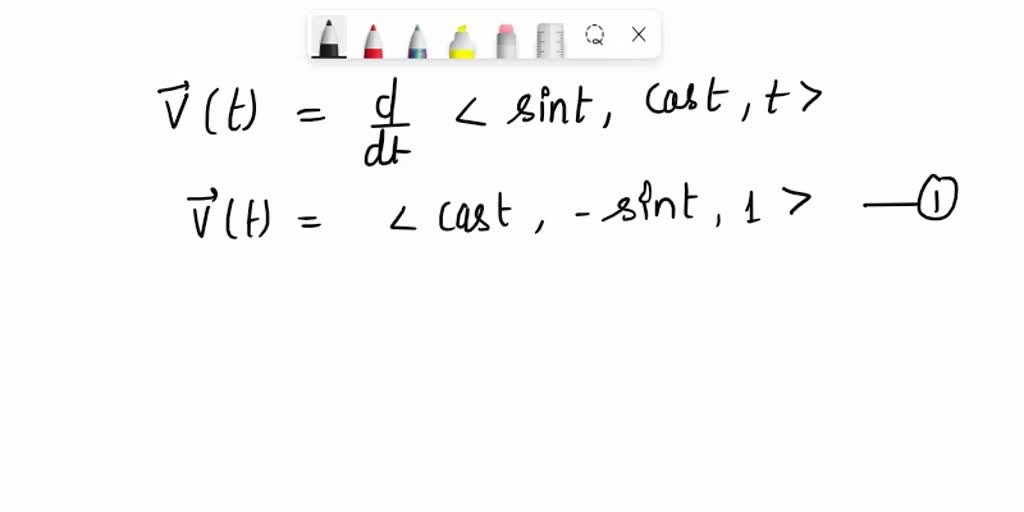 v⃗(t) = d/dt < sint, cost, t >
v⃗(t) = < cost, -sint, 1 > —①